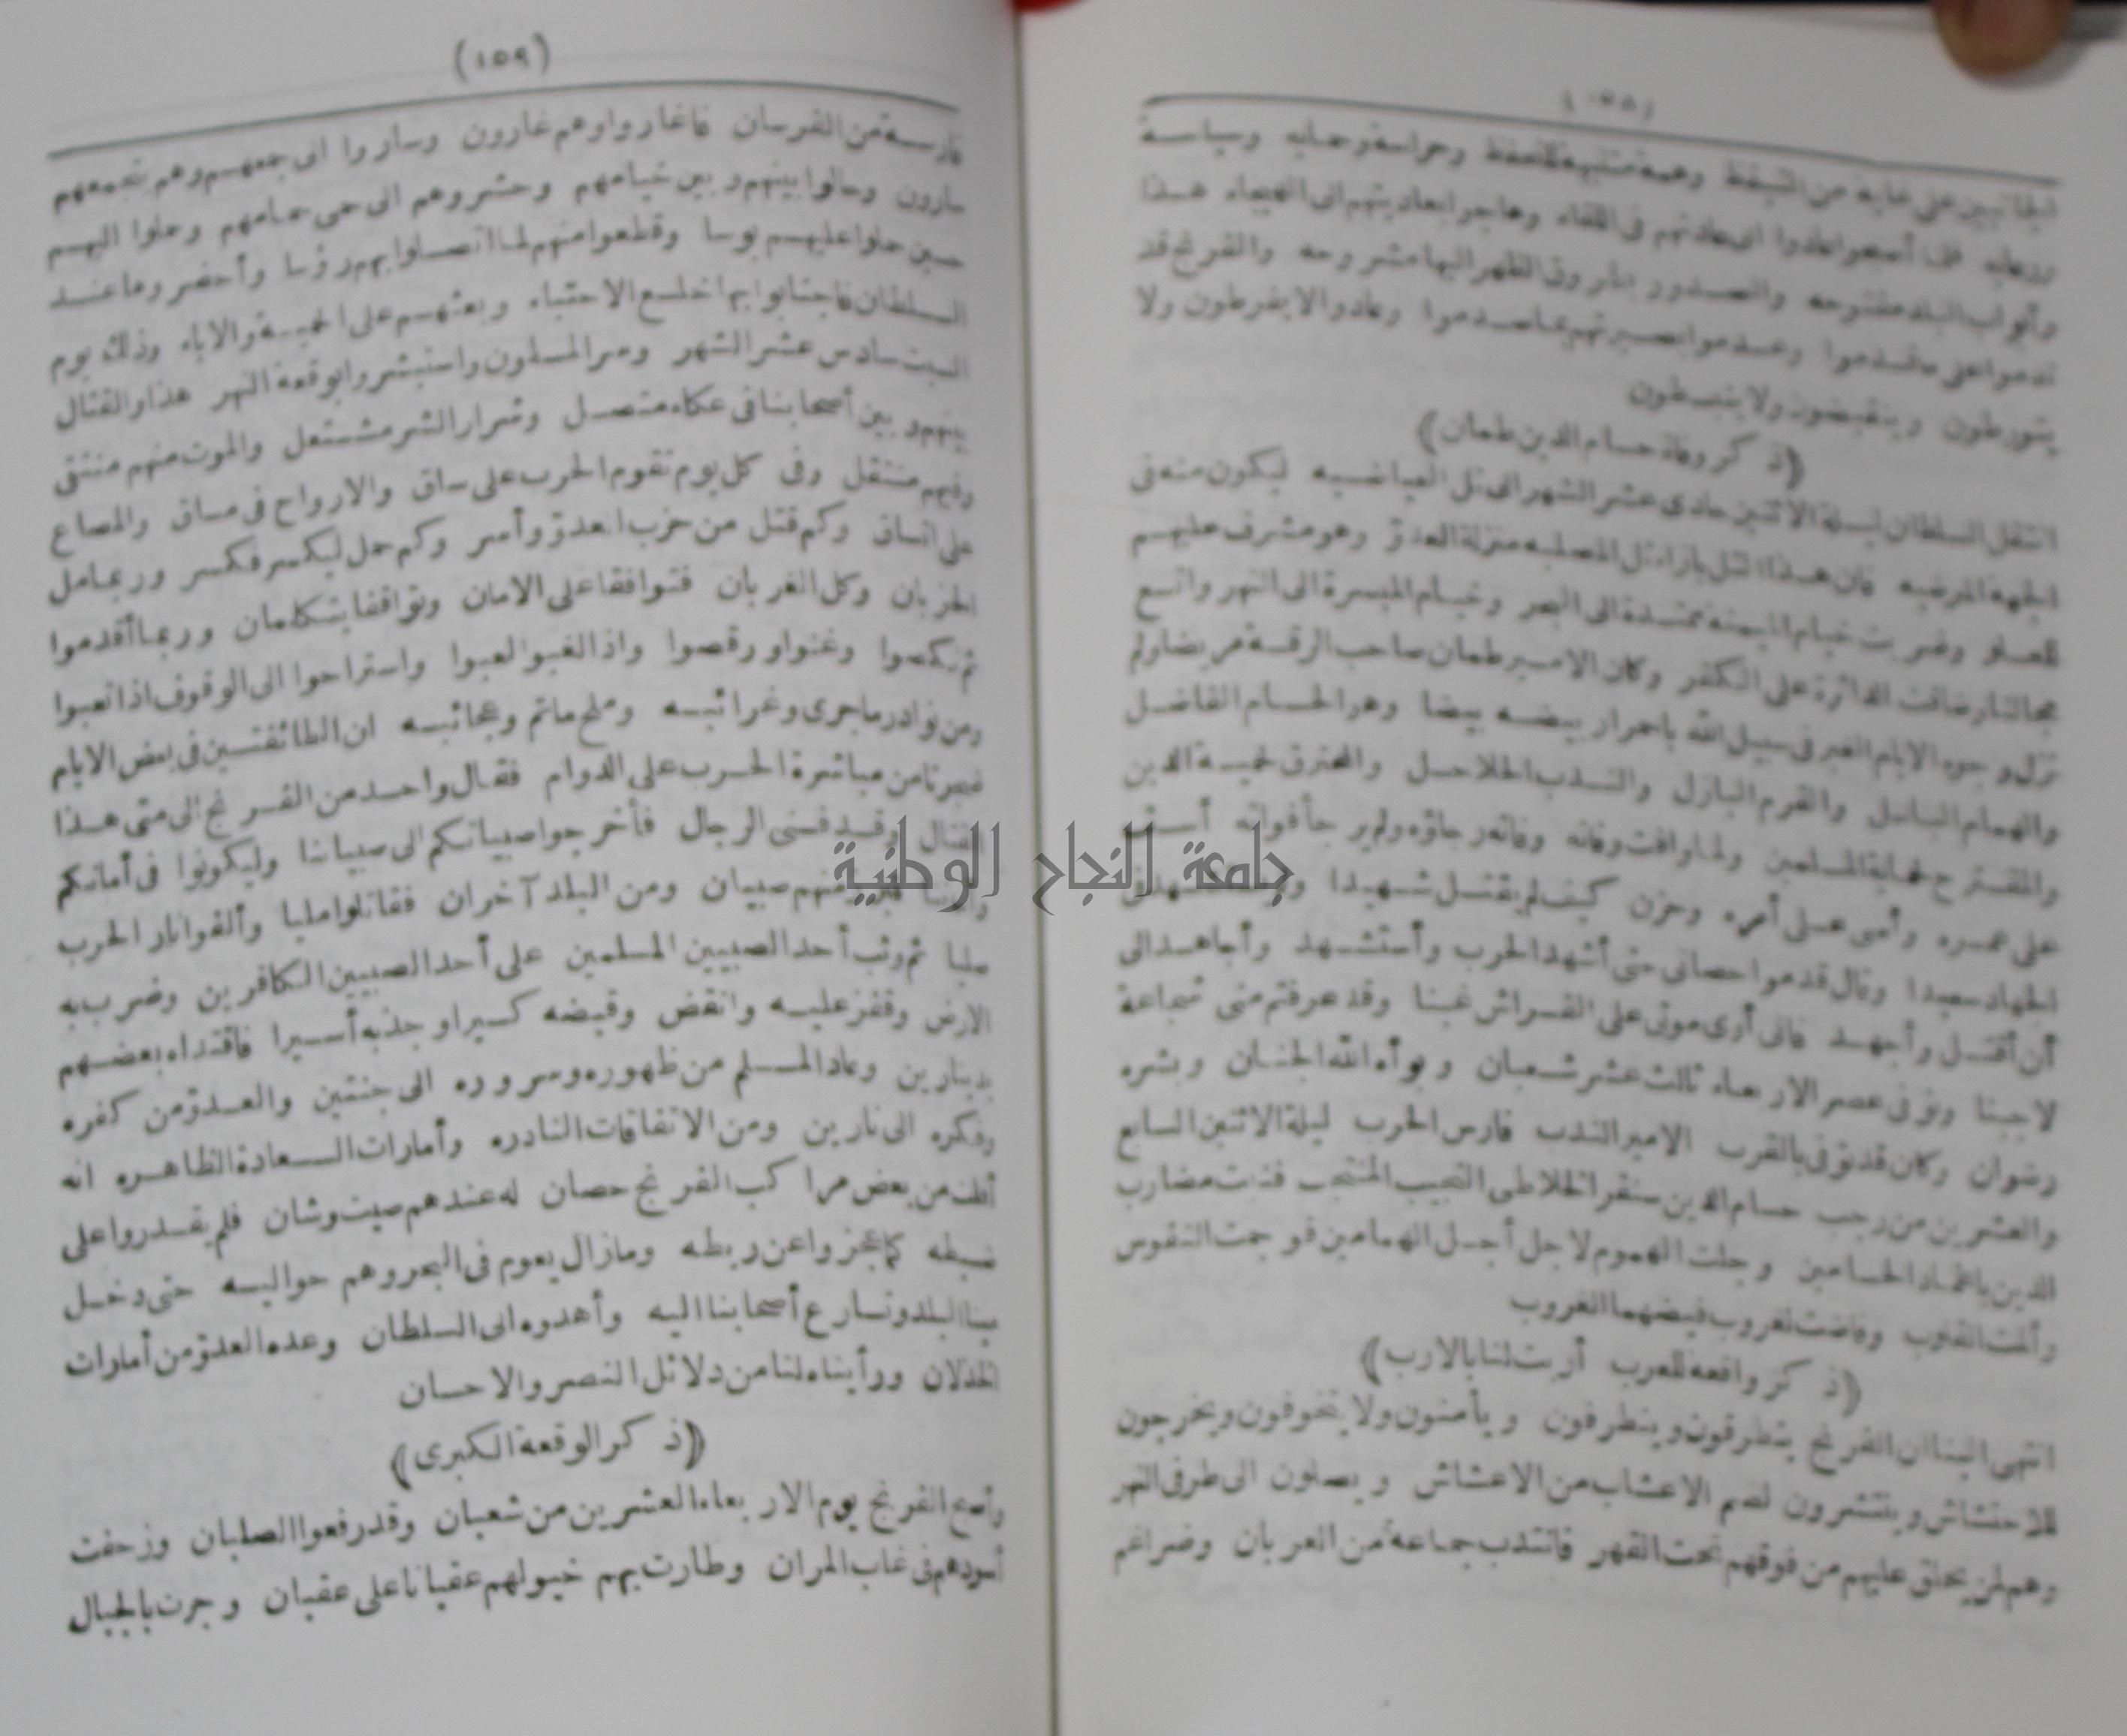 (١٥٨)
الجانبين على غاية من التيقظ وهمة متنبهة للتحفظ وحراسة وحمايه وسياسة
ورعايه فما أصبحوا عادوا الى عادتهم فى اللقاء وهاجوا بعاديتهم الى الهيجاء هذا
وأبواب البلد مفتوحه والصدور بطروق الظهر اليها مشروحه والفرنج قد
ندموا على ما قدموا وعدموا بصيرتهم بما صدموا وعادوا لا يفرطون ولا
يتورطون وينقبضون ولا ينبسطون
(ذكر وفاة حسام الدين طمان)
انتقل السلطان ليلة الاثنين حادى عشر الشهر الى تل العياضيه ليكون منه فى
الجهة المرضيه فان هذا التل بازاء تل المصلبه منزلة العدوّ وهو مشرف عليهم
للعلو وضربت خيام الميمنة ممتدة الى البحر وخيام الميسرة الى النهر واتسع
مجالنا وضاقت الدائرة على الكفر وكان الامير طمان صاحب الرقة مريضا ولم
تزل وجوه الايام الغبر فى سبيل الله باحمرار بيضه بيضا وهو الحسام الفاصل
والهمام الباسل والقرم البازل والندب الحلاحل والمحترق لحمية الدين
والمقترح لحماية المسلمين ولما وافت وفاته وفاته رجاؤه ولم يرجأ فواته أسف
على عمره وأسى على أمره وحزن كيف لم يقتل شهيدا فى
الجهاد سعيدا وقال قدموا حصانى حتى أشهد الحرب وأستشهد وأجاهد الى
أن أقتل وأجهد فانى أرى موتى على الفراش غبنا وقد عرفتم منى شجاعة
لا جبنا وتوفى عصر الاربعاء ثالث عشر شعبان وبوأه الله الجنان وبشره
رضوان وكان قد توفى بالقرب الامير الندب فارس الحرب ليلة الاثنين السابع
والعشرين من رجب حسام الدين سنقر الخلاطى النجيب المنتجب فنبت مضارب
الدين باغماد الحسامين وجلت الهموم لاجل أجل الهمامين فوجمت النفوس
وألمت القلوب وفاضت لغروب فيضهما الغروب
(ذكر واقعة للعرب أربت لنا بالارب)
انتهى الينا ان الفرنج يتطرقون ويتطرفون ويأمنون ولا يتخوفون ويخرجون
للاحتشاش وينتشرون لضم الاعشاب من الاعشاش ويصلون الى طرفى النهر
وهم لمن يحلق عليهم من فوقهم تحت القهر فانتدب جماعة من العربان وضراغم
(١٥٩)
فارسة من الفرسان فاغاروا وهم غارون وساروا الى جمعهم وهم بجمعهم
سارون وحالوا بينهم وبين خيامهم وحشروهم الى حمى حمامهم وحلوا اليهم
حين حملوا عليهم بوسا وقطعوا منهم لما اتصلوا بهم رؤسا وأحضروها عند
السلطان فاجتابوا بها خلع الاحتباء وبعثهم على الحمية والاباء وذلك يوم
السبت سادس عشر الشهر وسر المسلمون واستبشروا بوقعة النهر هذا والقتال
بينهم وبين أصحابنا فى عكاء متصل وشرار الشر مشتعل والموت منهم منتق
وفيهم منتقل وفى كل يوم تقوم الحرب على ساق والارواح فى مساق والمصاع
على اتساق وكم قتل من حزب العدوّ وأسر وكم حمل ليكسر فكسر وربما مل
الحزبان وكل الغربان فتوافقا على الامان وتواقفا يتكلمان وربما أقدموا
ثم نكصوا وغنوا ورقصوا واذا لغبوا لعبوا واستراحوا الى الوقوف اذا تعبوا
ومن نوادر ما جرى وغرائبه وملح ما تم وعجائبه ان الطائفتين فى بعض الايام
ضجرتا من مباشرة الحرب على الدوام فقال واحد من الفرنج الى متى هذا
القتال وقد فنى الرجال فأخرجوا صبيانكم الى صبياننا وليكونوا فى أمانكم
وأماننا منهم صبيان ومن البلد آخران فقاتلوا مليا وألفوا نار الحرب
صليا ثم وثب أحد الصبيين المسلمين على أحد الصبيين الكافرين وضرب به
الارض وقفز عليه وانقض وقبضه كسيرا وجذبه أسيرا فافتداه بعضهم
بدينارين وعاد المسلم من ظهوره وسروره الى جنتين والعدوّ من كفره
وفكره الى نارين ومن الاتفاقات النادره وأمارات السعادة الظاهره انه
أفلت من بعض مراكب الفرنج حصان له عندهم صيت وشان فلم يقدروا على
ضبطه كما عجزوا عن ربطه وما زال يعوم فى البحر وهم حواليه حتى دخل
مينا البلد وتسارع أصحابنا اليه وأهدوه الى السلطان وعده العدوّ من أمارات
الخذلان ورأيناه لنا من دلائل النصر والاحسان
(ذكر الوقعة الكبرى)
وأصبح الفرنج يوم الاربعاء العشرين من شعبان وقد رفعوا الصلبان وزحفت
أسودهم فى غاب المران وطارت بهم خيولهم عقبانا على عقبان وجرت بالجبال
جامعة النجاح الوطنية